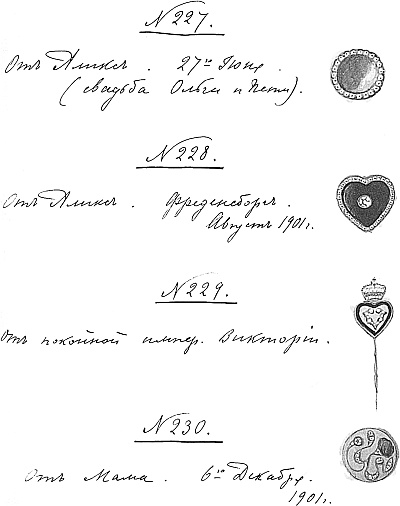 N 227.
Отъ Аликсъ. 27го Іюня.
(свадьба Ольги и Пети).
N 228.
Отъ Аликсъ. Фреденсборгъ.
Августъ 1901г.
N 229.
Отъ покойной импер. Викторіи.
N 230.
Отъ Мама. 6го Декабря.
1901г.